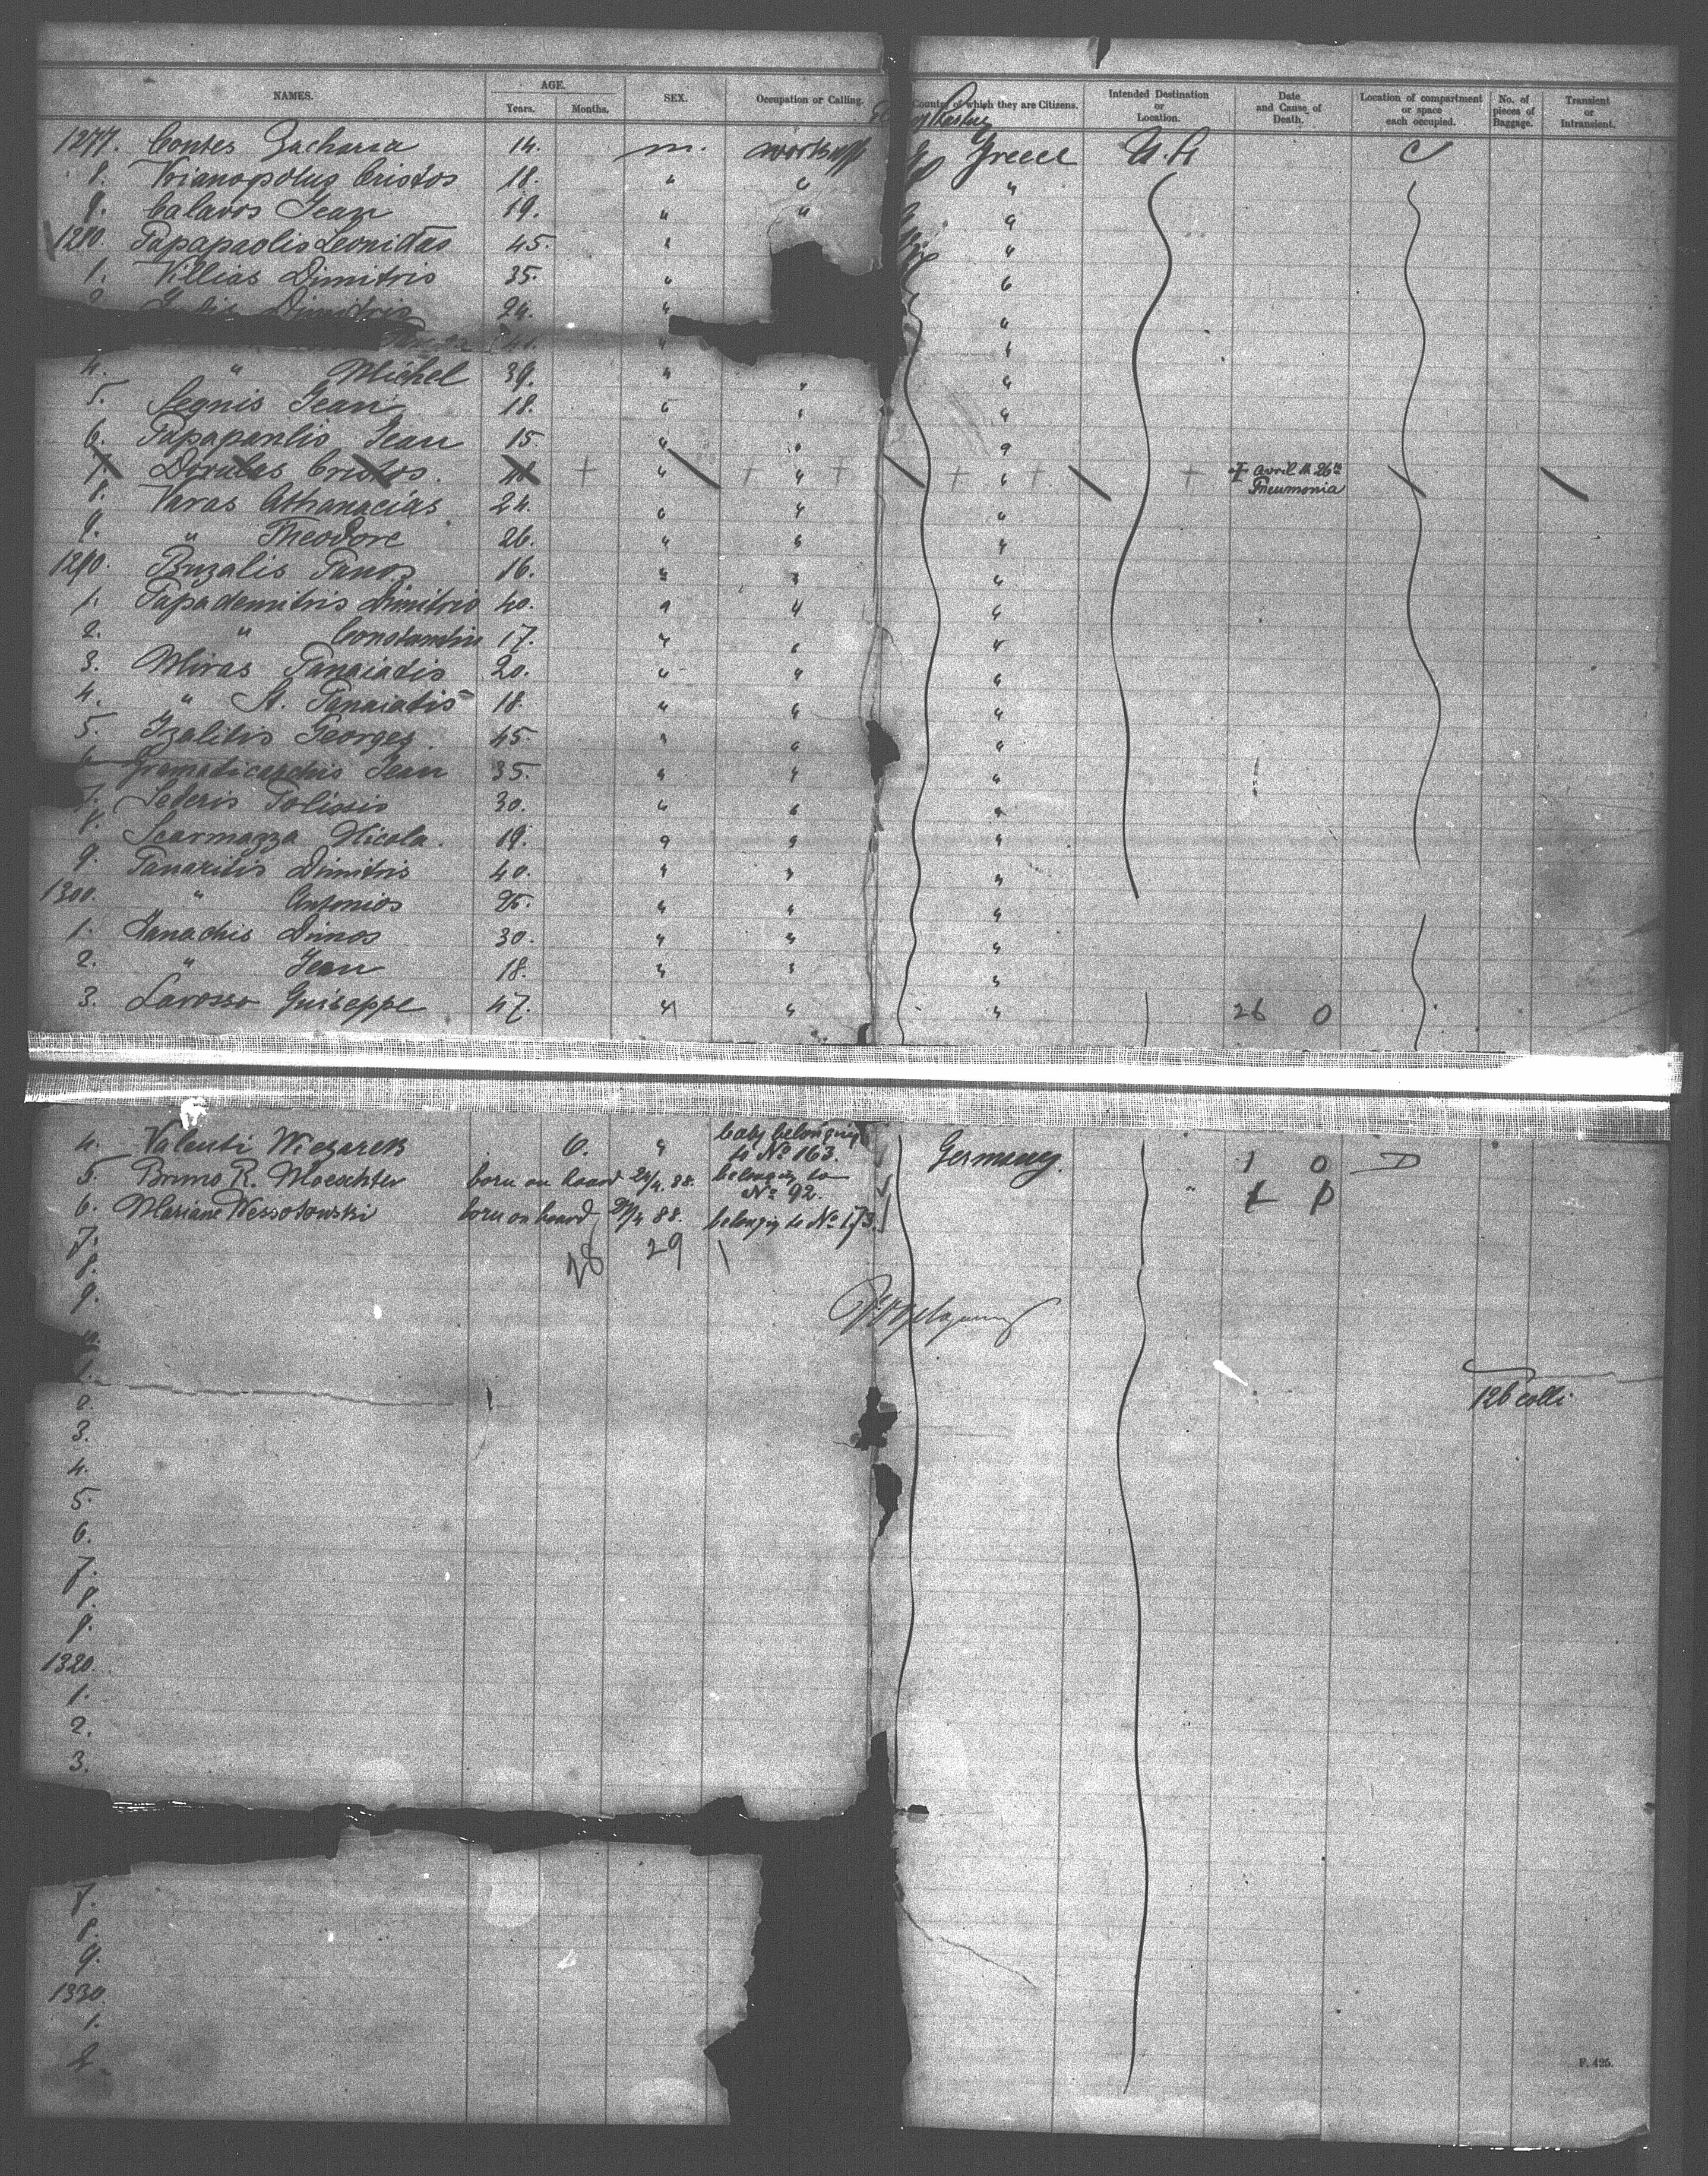 NAMES. AGE. Years. Months. SEX. Occupation or Calling. Country of which they are Citizens. Intended Destination or Location. Date and Cause of Death. Location of compartment or space each occupied. No. of pieces of Baggage. Transient or Intransient.
1277. Contes Zacharia 14. m. Greece U. S. C
8. Krianopolus Cristos 18. " " "
9. Calavos Jean 19. " " "
1280. Papapaolis Leonidas 45. " "
1. Villias Dimitris 35. " "
2. Dimitris 24. " "
4. " Michel 39. " " "
5. Segnis Jean 18. " " "
6. Papapanlis Jean 15. " " "
7. Dorulas Cristos. " " " † avril th 26th Pneumonia
8. Varas Athanacias 24. " " "
9. " Theodore 26. " " "
1290. Buzalis Panos 16. " " "
1. Papademitris Dimitris 40. " " "
2. " Constantin 17. " " "
3. Miras Panaiatis 20. " " "
4. " St. Panaiatis 18. " " "
5. Izalitis Georges. 45. " " "
6. Jean 35. " " "
7. Sederis 30. " " "
8. Scarmazza Nicola. 19. " " "
9. Panaritis Dimitris 40. " " "
1300. " Antonios 25. " " "
1. Janachis Dimos 30. " " "
2. " Jean 18. " " "
3. Larosso Guiseppe 47. " " " 26 0
4. Valenti Wiezarek 6. " baby belonging to No 163. Germany. " 1 0 D
5. Bruno R. Moeschter born on board 24/4. 88. belonging to No 92. " 1 0
6. Mariane Wessotowski born on board 29/4 88. belonging to No 173.
7. 28 29 1
8.
9.
1.
126 colli
2.
3.
4.
5.
6.
7.
8.
9.
1320.
1.
2.
3.
7.
8.
9.
1330.
1.
2.
F. 425.